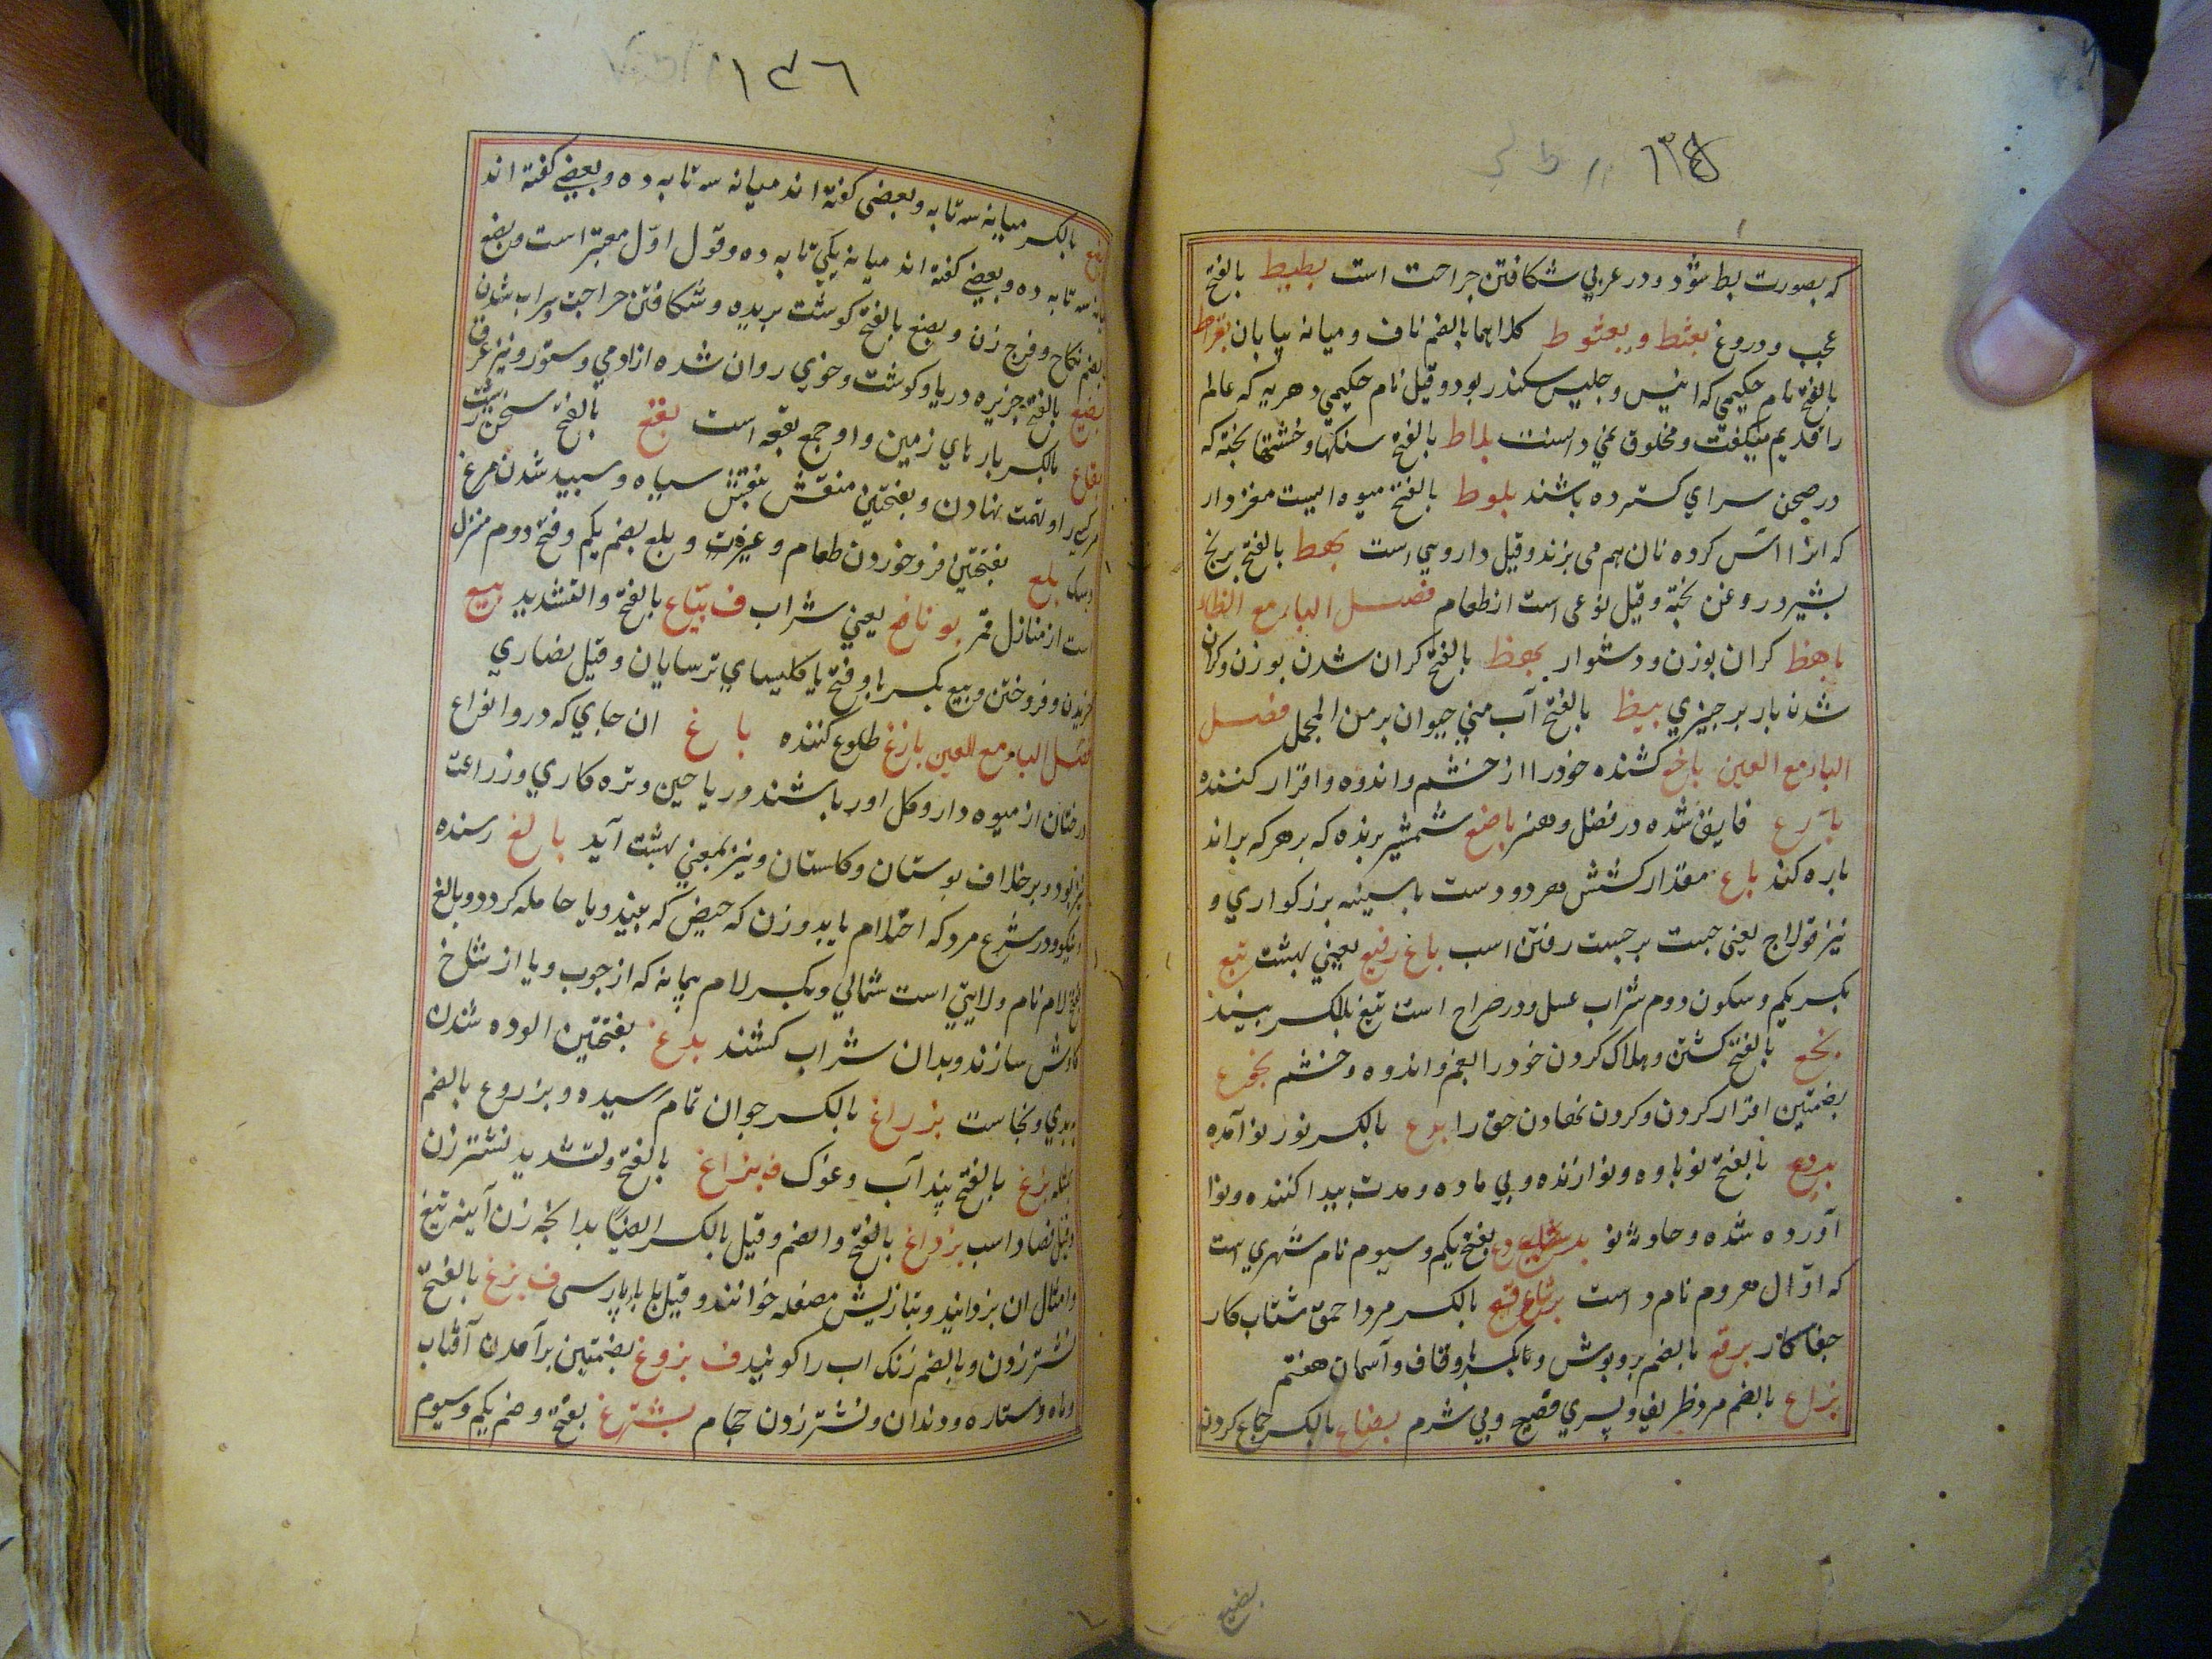 که بصورت بط شود و در عربي شكافتن جراحت است بطيط بالفتح
عجب و دروغ بعثط و بعثوط كلاهما بالضم ناف و ميانه بيابان بقراط
بالفتح نام حكيمي كه انيس و جليس سكندر بود و قيل نام حكيمي دهريه كه عالم
را قديم ميگفت و مخلوق نمي دانست بلاط بالفتح سنگها و خشتها پخته كه
در صحن سراي گسترده باشند بلوط بالفتح ميوه ايست مغز دار
كه انرا اس كرده نان هم مي پزند و قيل داروي است بهط بالفتح برنج
بشير و روغن پخته و قيل نوعى است از طعام فصل الباء مع الظاء
باهظ گران بوزن و دشوار بهظ بالفتح گران شدن بوزن و گران
شدن بار بر چيزي بيظ بالفتح آب مني حيوان بر من المجمل فصل
الباء مع العين باخع كشنده خود را از خشم و اندوه و اقرار كننده
بارع فايق شده در فضل و هنر باضع شمشير برنده كه بر هر كه براند
پاره كند باع مقدار كشش هر دو دست با سينه بزرگواري و
نيز قولاج يعنى جست بر جست رفتن اسب باغ رفيع يعني بهشت بتع
بكسر يكم و سكون دوم شراب عسل و در صراح است بتع بالكسر نبيذ
بخع بالفتح كشتن و هلاك كردن خود را بغم و اندوه و خشم بخوع
بضمتين اقرار كردن و گردن نهادن حق را بدع بالكسر نو و نو آمده
بديع بالفتح نو باوه و نو ارنده و بي ماده و مدت پيدا كننده و نو
آورده شده و حادثه نو بفتح يكم و سيوم نام شهري است
كه اوّل هروم نام داشت بالكسر مرد احمق شتاب كار
جفا كار برقع بالضم رو پوش و بالكسر با و قاف و آسمان هفتم
بزاع بالضم مرد ظريف و پسري فصيح و بي شرم بضاع بالكسر جماع كردن
بضيع
١٣٦
بالكسر ميانه سه تا به و بعضى گفته اند ميانه سه تا به ده و بعضي گفته اند
سه تا به ده و بعضي گفته اند ميانه يكي تا به ده و قول اوّل معتبر است و بضع
بضم نكاح و فرج زن و بضع بالفتح گوشت بريدن و شكافتن جراحت و سيراب شدن
بضيع بالفتح جزيره دريا و گوشت و خوي روان شده از ادمي و ستور و نيز عرق
بقاع بالكسر پارهاي زمين و او جمع بقعه است بقع بالفتح سخن زشت
را و تهمت نهادن و بفتحتين منقش بنقش سياه و سپيد شدن مرغ
و سگ بلع بفتحتين فرو خوردن طعام و غيره و بلع بضم يكم و فتح دوم منزل
است از منازل قمر بو نافع يعني شراب ف بياع بالفتح و التشديد بيع
خريدن و فروختن و بيع بكسر با و فتح يا كليساي ترسايان و قيل نصاري
فصل الباء مع الغين بازغ طلوع كننده باغ ان جاي كه درو انواع
درختان از ميوه دار و گل اور باشند و رياحين و تره كاري و زراعت
نيز بود و بر خلاف بوستان و گلستان و نيز بمعني بهشت آيد بالغ رسنده
و نيكو و در شرع مرد كه احتلام يابد و زن كه حيض كه بيند و يا حامله گردد و بالغ
بفتح لام نام ولايتي است شمالي و بكسر لام پيمانه كه از چوب و يا از شاخ
گاوش سازند و بدان شراب كشند بدغ بفتحتين الوده شدن
ببدي و نجاست بزراغ بالكسر جوان تمام رسيده و بزروغ بالضم
مثله بزغ بالفتح بند آب و غوك ف بزاغ بالفتح و تشديد نشتر زن
و قيل فصاد اسب بزداغ بالفتح و الضم و قيل بالكسر ايضاً بدانچه زن آينه تيغ
و امثال ان بزدايند و بتازيش مصقله خوانند و قيل با باء پارسى ف بزغ بالفتح
نشتر زدن و بالضم زنگ اب را گويند ف بزوغ بضمتين برآمدن آفتاب
و ماه و ستاره و دندان و نشتر زدن حجام بشترغ بفتح و ضم يكم و سيوم